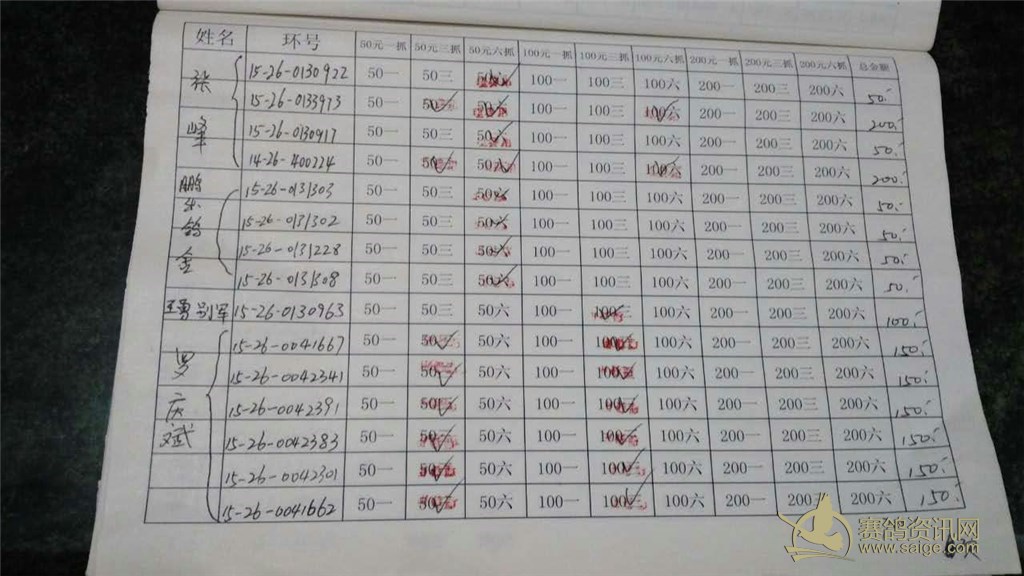 姓名 环号 50元一抓 50元三抓 50元六抓 100元一抓 100元三抓 100元六抓 200元一抓 200元三抓 200元六抓 总金额
张峰 15-26-0130922 50一 50三 50六 100一 100三 100六 200一 200三 200六 50.
15-26-0133973 50一 50三 50六 100一 100三 100六 200一 200三 200六 200.
15-26-0130917 50一 50三 50六 100一 100三 100六 200一 200三 200六 50.
14-26-400224 50一 50三 50六 100一 100三 100六 200一 200三 200六 200.
15-26-0131303 50一 50三 50六 100一 100三 100六 200一 200三 200六 50.
15-26-0131302 50一 50三 50六 100一 100三 100六 200一 200三 200六 50.
15-26-0131228 50一 50三 50六 100一 100三 100六 200一 200三 200六 50.
15-26-0131308 50一 50三 50六 100一 100三 100六 200一 200三 200六 50.
15-26-0130963 50一 50三 50六 100一 100三 100六 200一 200三 200六 100.
罗庆斌 15-26-0041667 50一 50三 50六 100一 100三 100六 200一 200三 200六 150.
15-26-0042341 50一 50三 50六 100一 100三 100六 200一 200三 200六 150.
15-26-0042391 50一 50三 50六 100一 100三 100六 200一 200三 200六 150.
15-26-0042383 50一 50三 50六 100一 100三 100六 200一 200三 200六 150.
15-26-0042301 50一 50三 50六 100一 100三 100六 200一 200三 200六 150.
15-26-0041662 50一 50三 50六 100一 100三 100六 200一 200三 200六 150.
赛鸽资讯网
www.saige.com